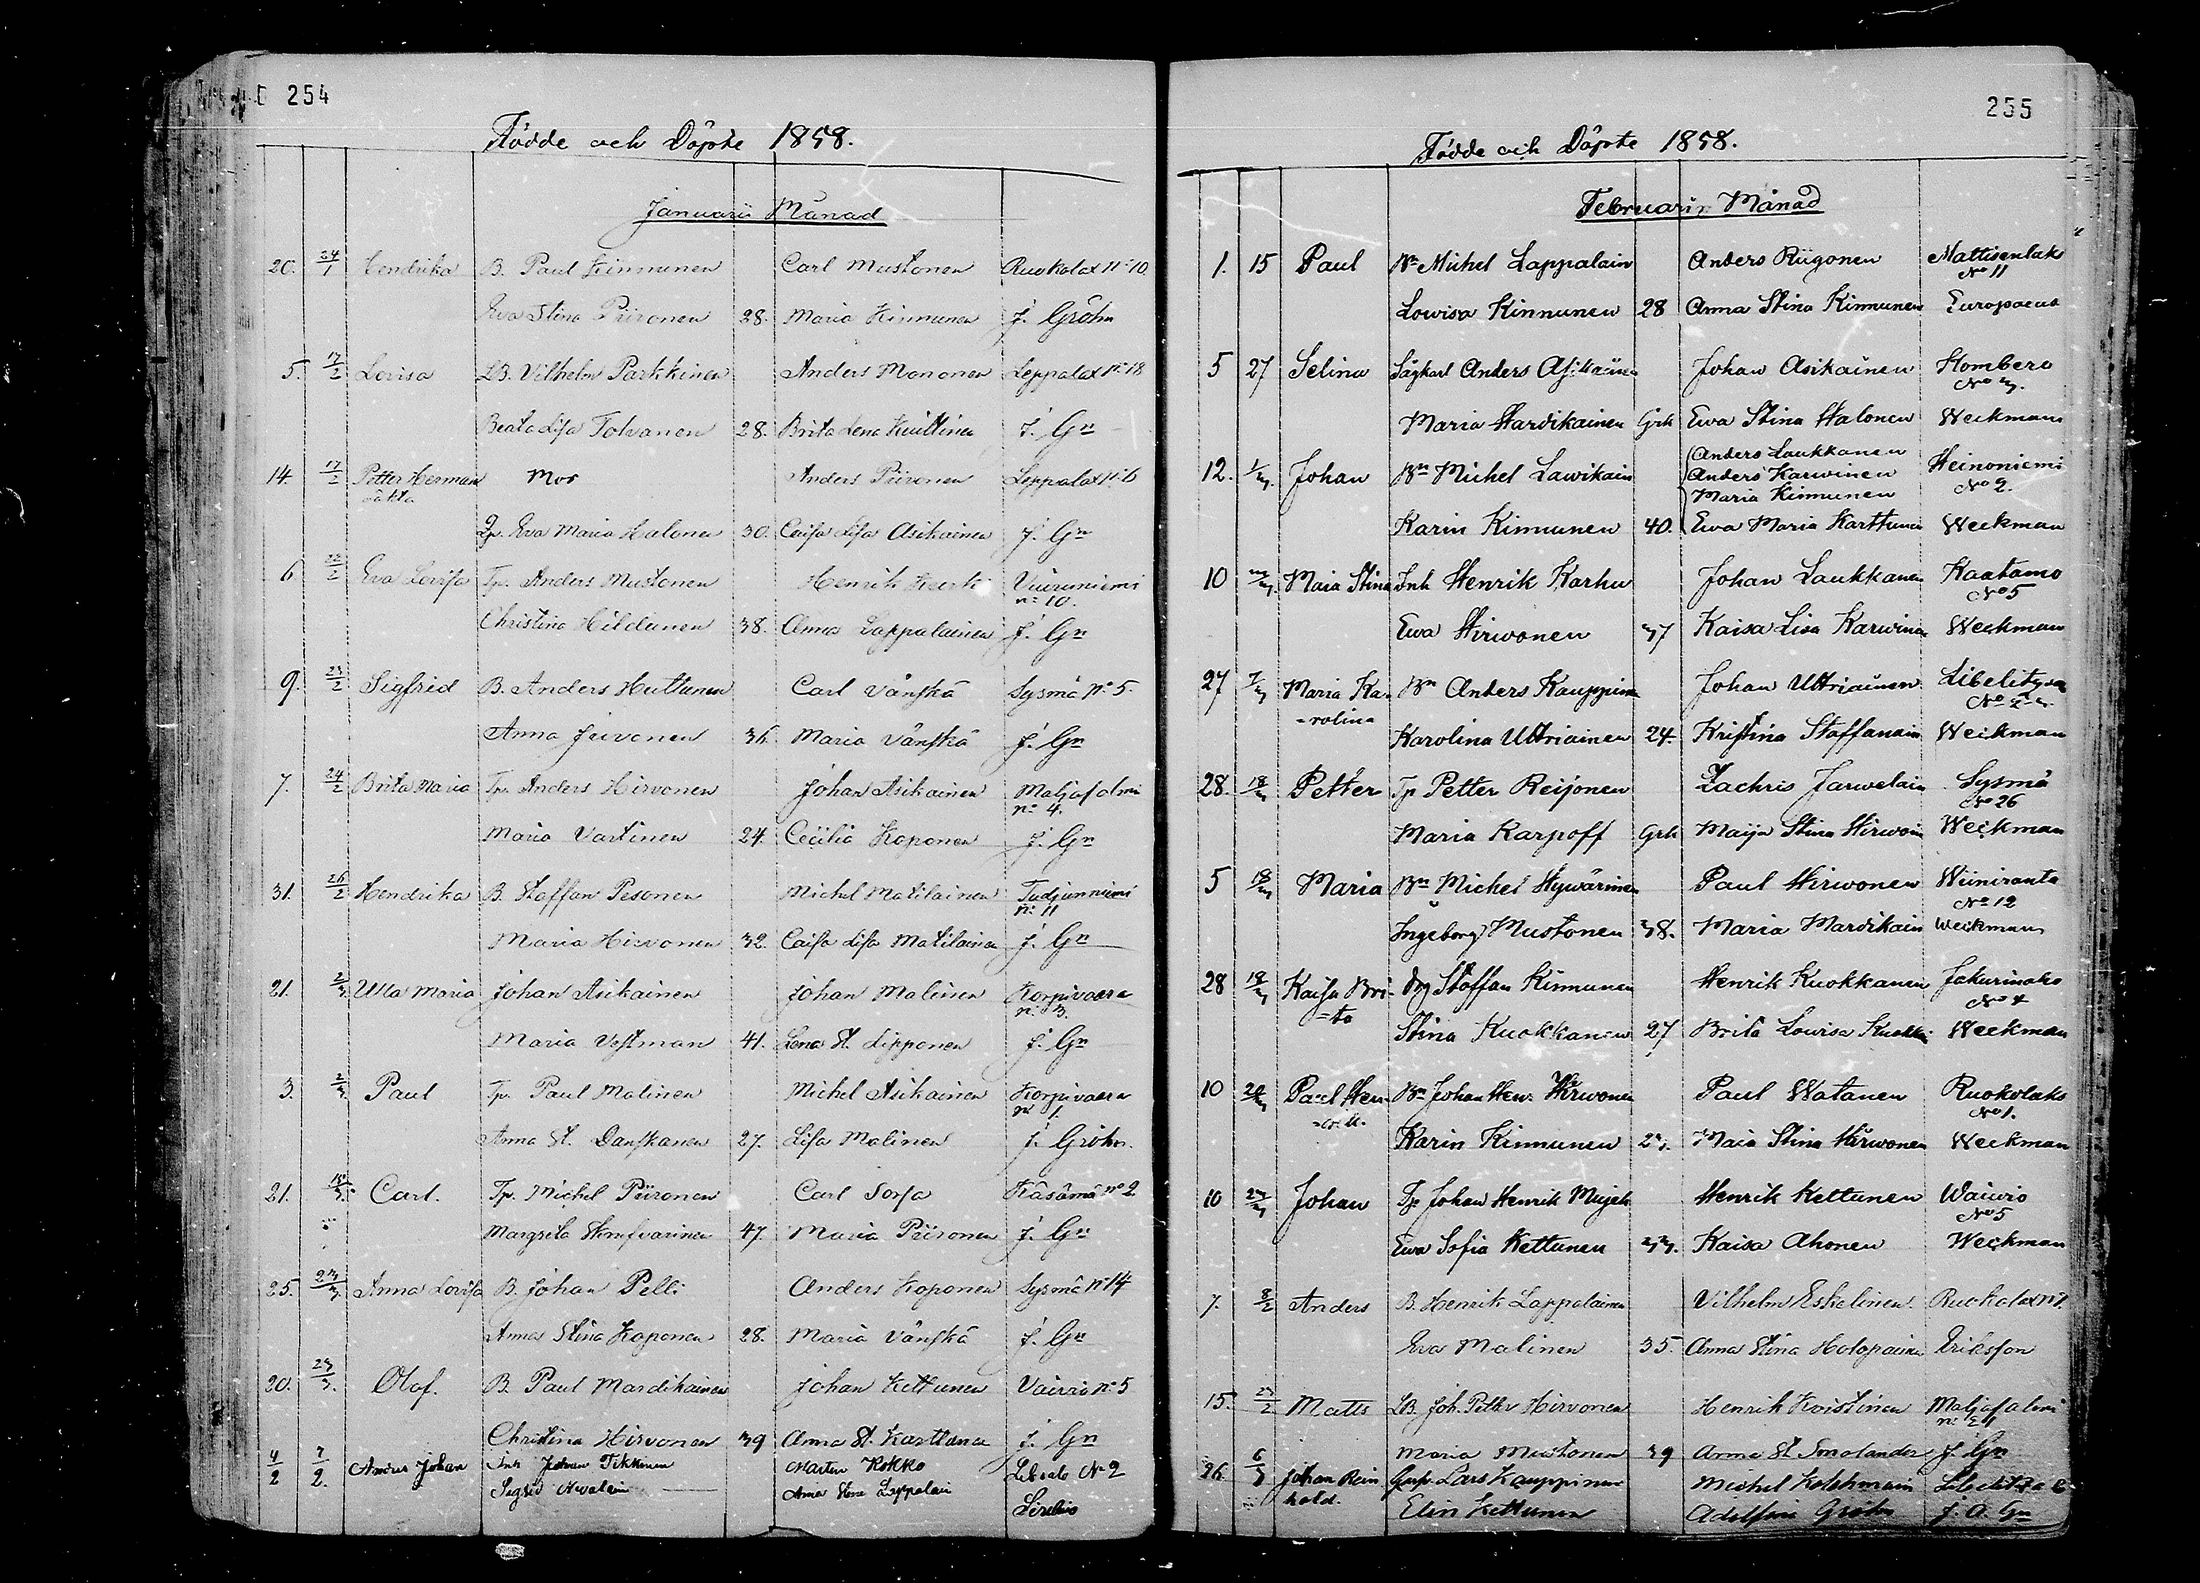 254
Födde och Döpte 1858.
Januarii Månad
20. 24/1 Hendrika B. Paul Kinnunen Carl Mustonen Ruokolax N:o 10.
Eva Stina Piironen 28. Maria Kinnunen J. Gröhn
5. 17/2 Lovisa LB. Vilhelm Parkkinen Anders Mononen Leppalax N:o 18
Beata Lisa Tolvanen 28. Brita Lena Kuittinen J. Gn
14. 17/2 Petter Herman Mor Anders Piironen Leppalax N:o 6
oäkta
Eva Maria Halonen 30. Caisa Lisa Asikainen J. Gn
6. 22/2 Eva Lovisa Tp. Anders Mustonen Henrik Viiruniemi
n:o 10.
Christina Hildunen 38. Anna Lappalainen J. Gn
9. 23/2 Sigfrid B. Anders Huttunen Carl Vänskä Sysmä N:o 5.
Anna Juvonen 36. Maria Vänskä J. Gn
7. 24/2 Brita Maria Tp. Anders Hirvonen Johan Asikainen Maljasalmi
n:o 4.
Maria Vartinen 24. Cecilia Koponen J. Gn
31. 26/2 Hendrika B. Staffan Pesonen Michel Matilainen
n:o 11
Maria Hirvonen 32. Caisa Lisa Matilainen J. Gn
21. 2/3 Ulla Maria Johan Asikainen Johan Malinen Korpivaara
n:o 3.
Maria Vestman 41. Lena St. Lipponen J. Gn
3. 2/3 Paul Tp. Paul Malinen Michel Asikainen Korpivaara
n:o 1.
Anna St. Danskanen 27. Lisa Malinen J. Gröhn.
21. Carl. Tp. Michel Piironen Carl Sorsa Käsämä N:o 2
Margreta 47. Maria Piironen J. Gn
25. 23/3 Anna Lovisa B. Johan Pelli Anders Koponen Sysmä N:o 14
Anna Stina Koponen 28. Maria Vänskä J. Gn
20. 23/3. Olof. B. Paul Mardikainen Johan Kettunen Vaivio N:o 5
Christina Hirvonen 39 Anna St. Karttunen J. Gn
4/2 7/2. Anders Johan Inh Johan Tikkanen Martin Kokko No 2
Sigrid Anna Stina
255
Födde och Döpte 1858.
Februarii Månad
1. 15 Paul Bn Michel Lappalain Anders Riigonen Mattisenlaks
No 11
Lowisa Kinnunen 28 Anna Stina Kinnunen Europaeus
5 27 Selina Sågkarl Anders Asikainen Johan Asikainen
No 3.
Maria Hardikainen Grh Ewa Stina Halonen Weckman
Anders Laukkanen
12. 1/3 Johan Bn Michel Lawikain Anders Karwinen Heinoniemi
No 2.
Maria Kinnunen
Karin Kinnunen 40. Ewa Maria Karttunen Weckman
10 Maia Stina Inh Henrik Karhu Johan Laukkanen Kaatamo
No 5
Ewa Hirwonen 37 Kaisa Lisa Karwinen Weckman
27 7/3 Maria Ka- Bn Anders Kauppinen Johan Uttriainen Libelits
=rolina
Karolina Uttriainen 24. Kristina Staffanain Weckman
28. 18/3 Petter Tp Petter Reijonen Zachris Jarwelain Sysmä
No 26
Maria Karpoff Grh Maija Stina Hirwoin Weckman
5 18/3 Maria Bn Michel Hywärinen Paul Hirwonen Wiiniranta
No 12
Ingeborg Mustonen 38. Maria Mardikain Weckman
28 19/3 Kaisa Bri- Drg Staffan Kinnunen Henrik Kuokkanen
No 4
=ta
Stina Kuokkanen 27 Brita Lowisa Weckman
10 Paul Hen- Bn Johan Hen. Hirwonen Paul Watanen Ruokolaks
No 1.
Karin Kinnunen 23. Maia Stina Hirwonen Weckman
10 23/3 Johan Tp Johan Henrik Henrik Kettunen Waiwio
No 5
Ewa Sofia Kettunen 33. Kaisa Ahonen Weckman
7. 8/2 Anders B. Henrik Lappalainen Vilhelm Eskelinen. Ruokolax
Eva Malinen 35. Anna Stina Holopainen Eriksson
15. 23/2 Matts LB. Joh. Petter Hirvonen Henrik Koistinen Maljasalmi
Maria Mustonen 39 Anna St. Smolander J. Gn
26 6/3 Johan Rein Lars Kauppinen Michel
hold. Elin Kettunen Gröhn J. A. Gn